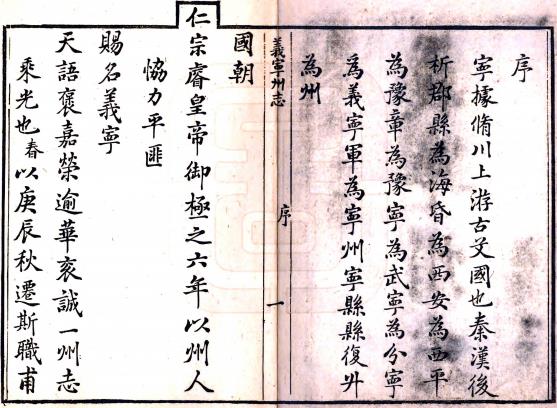 序
寧據脩川上游古艾國也秦漢後
析郡縣為海昏為西安為西平
為豫章為豫寧為武寧為分寧
為義寧軍為寧州寧縣縣復升
為州
義寧州志
序
一
國朝
仁宗睿皇帝御極之六年以州人
恊力平匪
賜名義寧
天語褒嘉榮逾華衮誠一州志
乘光也春以庚辰秋遷斯職甫